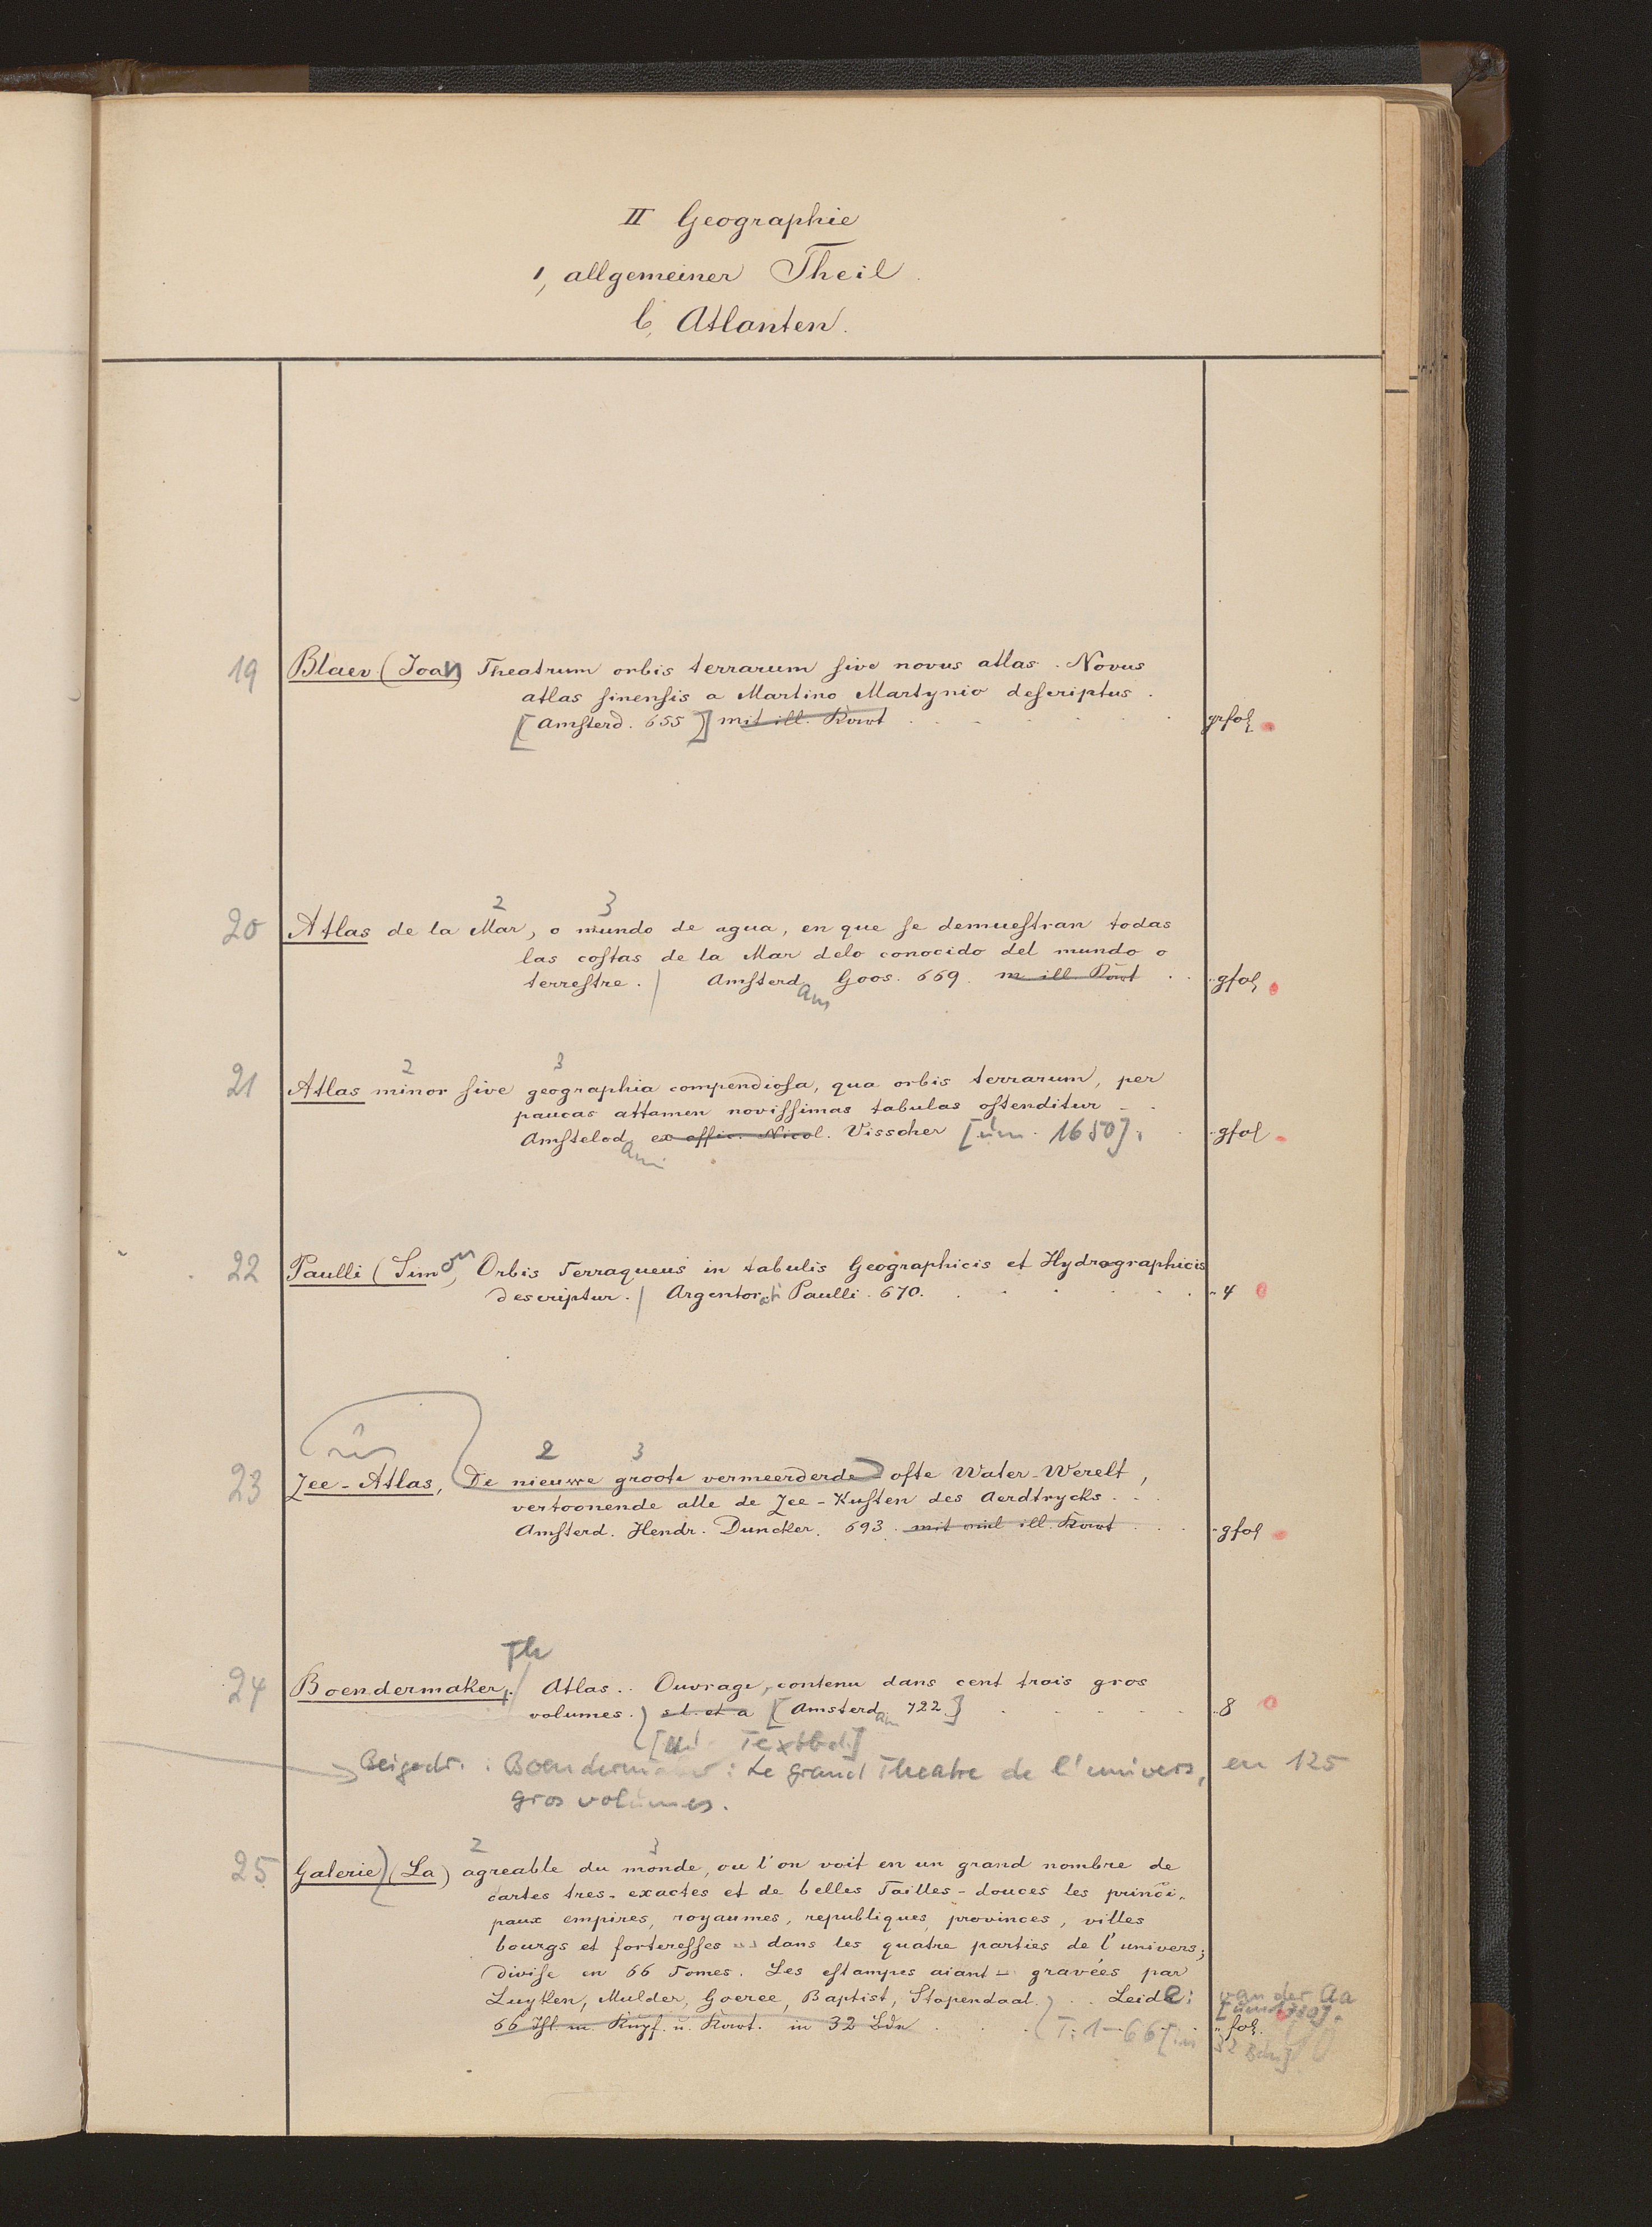 II Geographie
1, allgemeiner Theil.
b, Atlanten.
19 Blaev (Joan) Theatrum orbis terrarum sive novus atlas. Novus
atlas sinensis a Martino Martynio descriptus.
[Amsterd. 655] mit ill. Kart grfol
2 3
20 Atlas de la Mar, o mundo de agua, en que se demuestran todas
las costas de la Mar delo conocido del mundo o
terrestre. / Amsterdam Goos. 669. m ill. Kart gfol
2 3
21 Atlas minor sive geographia compendiosa, qua orbis terrarum, per
paucas attamen novissimas tabulas ostenditur
Amstelodami ex offic. Nicol. Visscher [um 1650]. gfol
22 Paulli (Simon) Orbis Terraqueus in tabulis Geographicis et Hydrographicis
descriptur. / Argentorati Paulli. 670. 4
2 3
23 Zee-Atlas, De nieuwe groote vermeerderde ofte Water-Werelt,
vertoonende alle de Zee-Kusten des Aerdtrycks
Amsterd. Hendr. Duncker. 693. mit viel ill. Kart gfol
Th
24 Boendermaker, / Atlas.. Ouvrage, contenu dans cent trois gros
volumes.) s l. et a [Amsterdam 722.] 8
[Textbd.]
Beigedr.: Boendermaker: Le grand Theatre de l'univers, en 125
gros volumes.
2 3
25 Galerie) (La) agreable du monde, ou l'on voit en un grand nombre de
cartes tres-exactes et de belles Tailles-douces les princi-
paux empires, royaumes, republiques, provinces, villes
bourgs et forteresses dans les quatre parties de l'univers;
divise en 66 Tomes. Les estampes aiant gravées par
Luyken, Mulder, Goeree, Baptist, Stopendaal.) .. Leide: van der Aa
66 Thl. m. Kupf. u. Kart. in 32 Bdn (T. 1-66 [in fol.
32 Bdn]